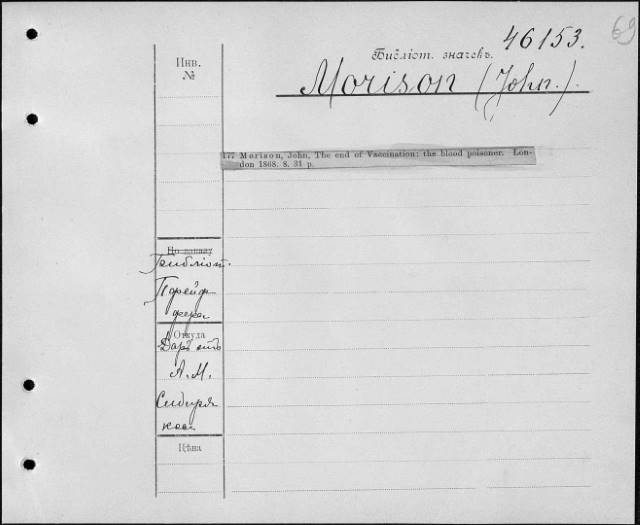 69
46153.
Библіот. значекъ.
Инв.
№
Morison (John.).
177 Morison, John, The end of Vaccination: the blood poisoner. Lon-
don 1868. 8. 31 p.
По заказу
Библіот.
Пфейф
фера
Откуда
Даръ отъ
А. М.
Сибиря
кова
Цѣна